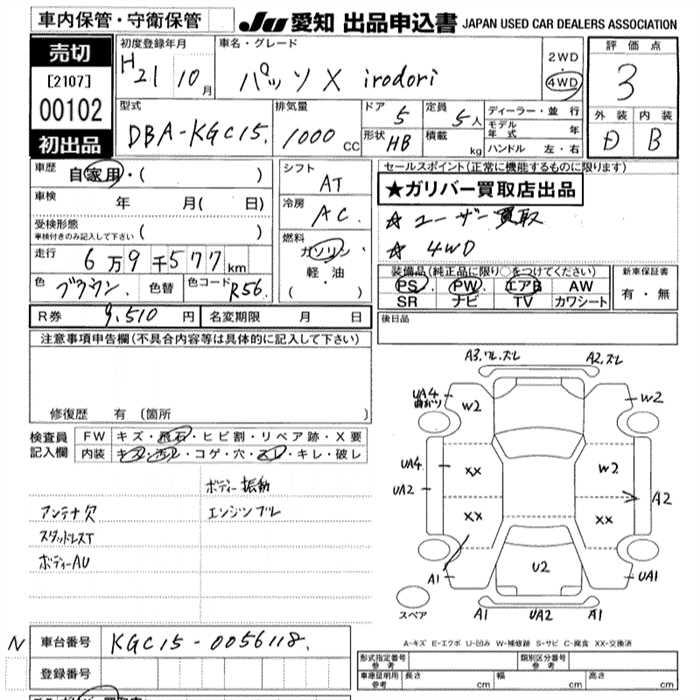 車内保管・守衛保管
JU 愛知 出品申込書 JAPAN USED CAR DEALERS ASSOCIATION
売切
[2107]
00102
初出品
初度登録年月
H21 10月
車名・グレード
パッソX irodori
2WD
4WD
評価点
3
外装 内装
D B
型式
DBA-KGC15.
排気量
1000 cc
ドア 5
形状 HB
定員 5人
積載 kg
ディーラー・並行
モデル年式 年
ハンドル 左・右
車歴
自家用・( )
車検 年 月( 日)
受検形態
車検付きのみ記入して下さい ( )
走行 6万9千577km
色 ブラウン. 色替 色コード R56.
シフト
AT
冷房
AC.
燃料
ガソリン
軽・油
( ・ )
セールスポイント(正常に機能するものに限ります)
★ガリバー買取店出品
☆ユーザー買取
☆4WD
装備品(純正品に限り○をつけてください)
PS PW エアB AW
SR ナビ TV カワシート
新車保証書
有・無
R券 9,510円 名変期限 月 日
後日品
注意事項申告欄(不具合内容等は具体的に記入して下さい)
修復歴 有 (箇所 )
検査員記入欄
FW キズ・飛石・ヒビ割・リペア跡・X要
内装 キズ・汚レ・コゲ・穴・スレ・キレ・破レ
ボディー振動
アンテナ欠 エンジンブレ
スタッドレスT
ボディーAU
A3.ワレ.ズレ A2.ズレ
UA4
W2 W2
UA4 XX W2
UA2 A2
XX XX
U2
A1 UA1
スペア A1 UA2 A1
A-キズ E-エクボ U-凹み W-補修跡 S-サビ C-腐食 XX-交換済
N 車台番号 KGC15-0056118.
登録番号
形式指定番号参考 類別区分番号参考
車庫証明用参考 長さ cm 幅 cm 高さ cm